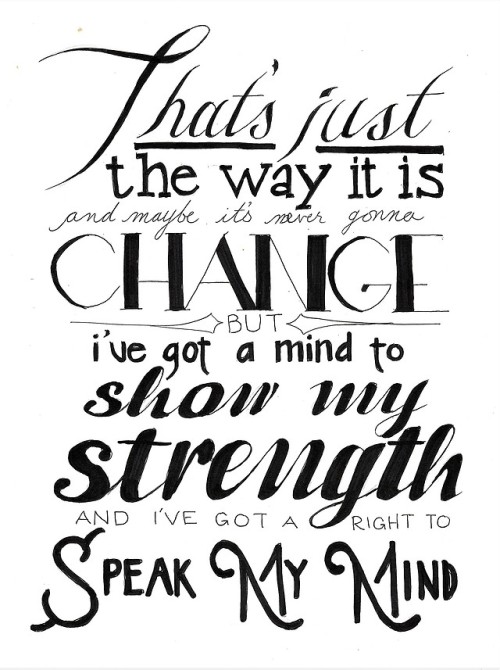 That's just
the way it is
and maybe it's never gonna
CHANGE
BUT
i've got a mind to
show my
strength
AND I'VE GOT A RIGHT TO
SPEAK MY MIND